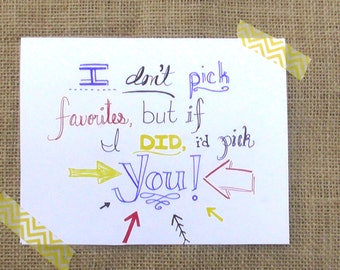 I don't pick
favorites, but if
I DID, i'd pick
you!